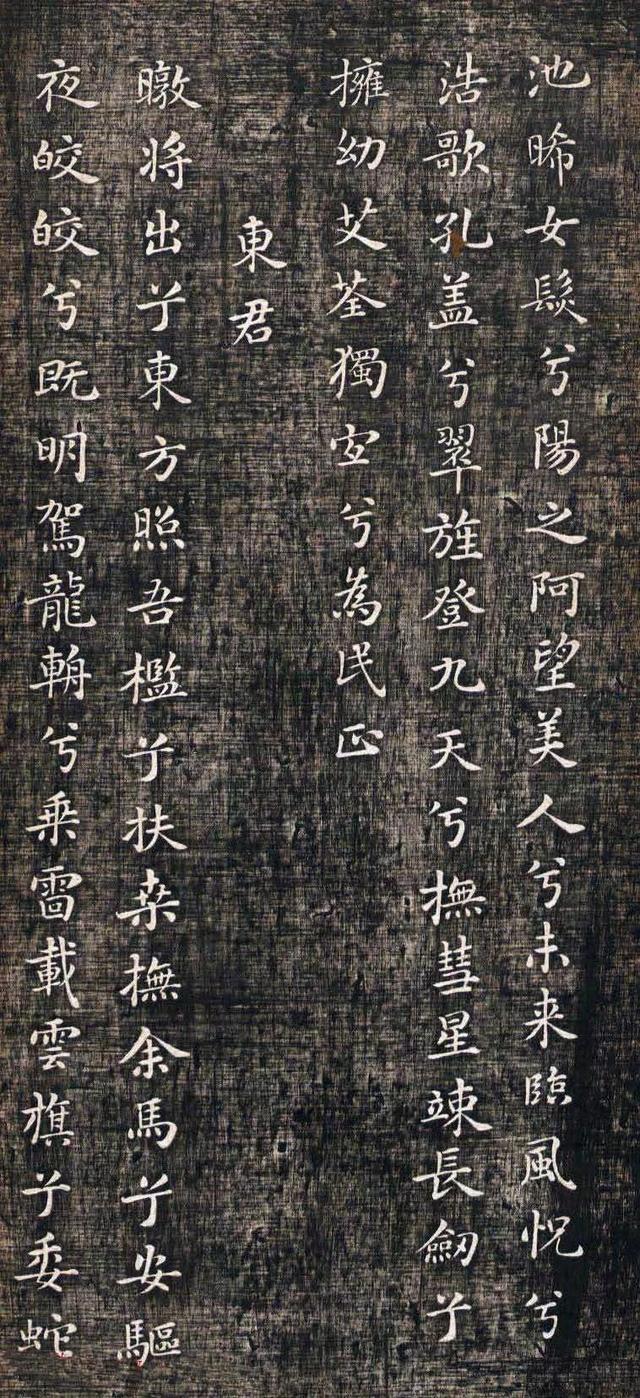 池晞女髮兮陽之阿望美人兮未来臨風怳兮
浩歌孔盖兮翠旌登九天兮撫彗星竦長劔兮
擁幼艾荃獨宜兮為民正
東君
暾将出兮東方照吾檻兮扶桒撫余馬兮安驅
夜皎皎兮既明駕龍輈兮乗雷載雲旗兮委蛇